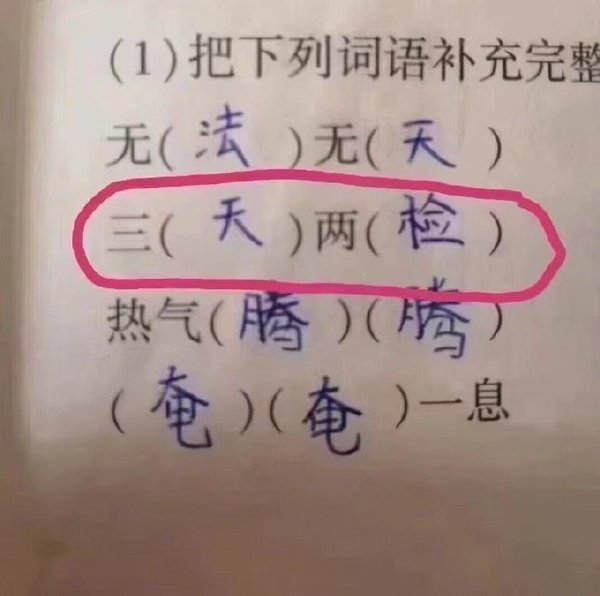 (1)把下列词语补充完整
无(法)无(天)
三(天)两(检)
热气(腾)(腾)
(奄)(奄)一息